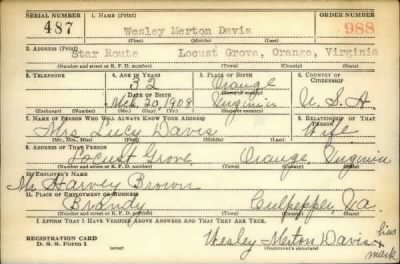 SERIAL NUMBER 1. NAME (Print) ORDER NUMBER
487 Wesley Merton Davis 988
(First) (Middle) (Last)
2. ADDRESS (Print)
Star Route Locust Grove, Orange, Virginia
(Number and street or R. F. D. number) (Town) (County) (State)
3. TELEPHONE 4. AGE IN YEARS 5. PLACE OF BIRTH 6. COUNTRY OF CITIZENSHIP
32 Orange
(Town or county)
DATE OF BIRTH
Mch. 20, 1908 Virginia U. S. A.
(Exchange) (Number) (Mo.) (Day) (Yr.) (State or country)
7. NAME OF PERSON WHO WILL ALWAYS KNOW YOUR ADDRESS 8. RELATIONSHIP OF THAT PERSON
Mrs Lucy Davis Wife
(Mr., Mrs., Miss) (First) (Middle) (Last)
9. ADDRESS OF THAT PERSON
Locust Grove Orange, Virginia
(Number and street or R. F. D. number) (Town) (County) (State)
10. EMPLOYER'S NAME
Mr. Harvey Brown
11. PLACE OF EMPLOYMENT OR BUSINESS
Brandy Culpepper, Va
(Number and street or R. F. D. number) (Town) (County) (State)
I AFFIRM THAT I HAVE VERIFIED ABOVE ANSWERS AND THAT THEY ARE TRUE.
his
REGISTRATION CARD Wesley Merton Davis x
D. S. S. Form 1 (over) (Registrant's signature) mark